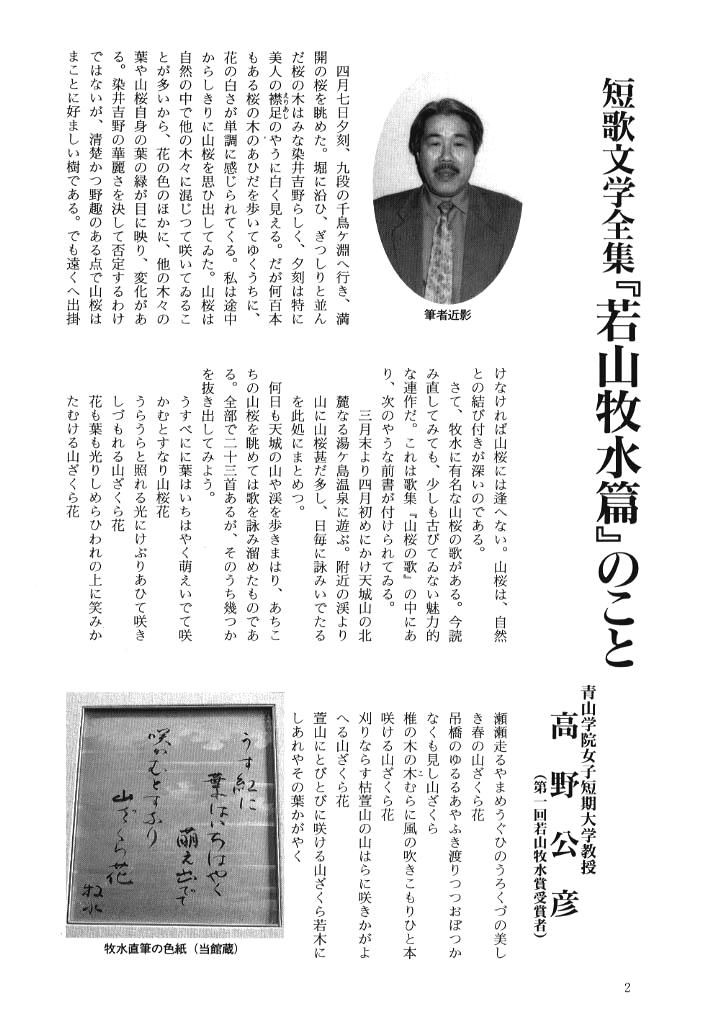 短歌文学全集『若山牧水篇』のこと
青山学院女子短期大学教授
高野公彦
（第一回若山牧水賞受賞者）
筆者近影
四月七日夕刻、九段の千鳥ケ淵へ行き、満
開の桜を眺めた。堀に沿ひ、ぎつしりと並ん
だ桜の木はみな染井吉野らしく、夕刻は特に
美人の襟足のやうに白く見える。だが何百本
えりあし
もある桜の木のあひだを歩いてゆくうちに、
花の白さが単調に感じられてくる。私は途中
からしきりに山桜を思ひ出してゐた。山桜は
自然の中で他の木々に混じつて咲いてゐるこ
とが多いから、花の色のほかに、他の木々の
葉や山桜自身の葉の緑が目に映り、変化があ
る。染井吉野の華麗さを決して否定するわけ
ではないが、清楚かつ野趣のある点で山桜は
まことに好ましい樹である。でも遠くへ出掛
けなければ山桜には逢へない。山桜は、自然
との結び付きが深いのである。
さて、牧水に有名な山桜の歌がある。今読
み直してみても、少しも古びてゐない魅力的
な連作だ。これは歌集『山桜の歌』の中にあ
り、次のやうな前書が付けられてゐる。
三月末より四月初めにかけ天城山の北
麓なる湯ケ島温泉に遊ぶ。附近の渓より
山に山桜甚だ多し、日毎に詠みいでたる
を此処にまとめつ。
何日も天城の山や渓を歩きまはり、あちこ
ちの山桜を眺めては歌を詠み溜めたものであ
る。全部で二十三首あるが、そのうち幾つか
を抜き出してみよう。
うすべにに葉はいちはやく萌えいでて咲
かむとすなり山桜花
うらうらと照れる光にけぶりあひて咲き
しづもれる山ざくら花
花も葉も光りしめらひわれの上に笑みか
たむける山ざくら花
瀬瀬走るやまめうぐひのうろくづの美し
き春の山ざくら花
吊橋のゆるるあやふき渡りつつおぼつか
なくも見し山ざくら
椎の木の木むらに風の吹きこもりひと本
咲ける山ざくら花
刈りならす枯萱山の山はらに咲きかがよ
へる山ざくら花
萱山にとびとびに咲ける山ざくら若木に
しあれやその葉かがやく
うす紅に
葉はいちはやく
萌え出でて
咲かむとすなり
山ざくら花
牧水
牧水直筆の色紙（当館蔵）
2